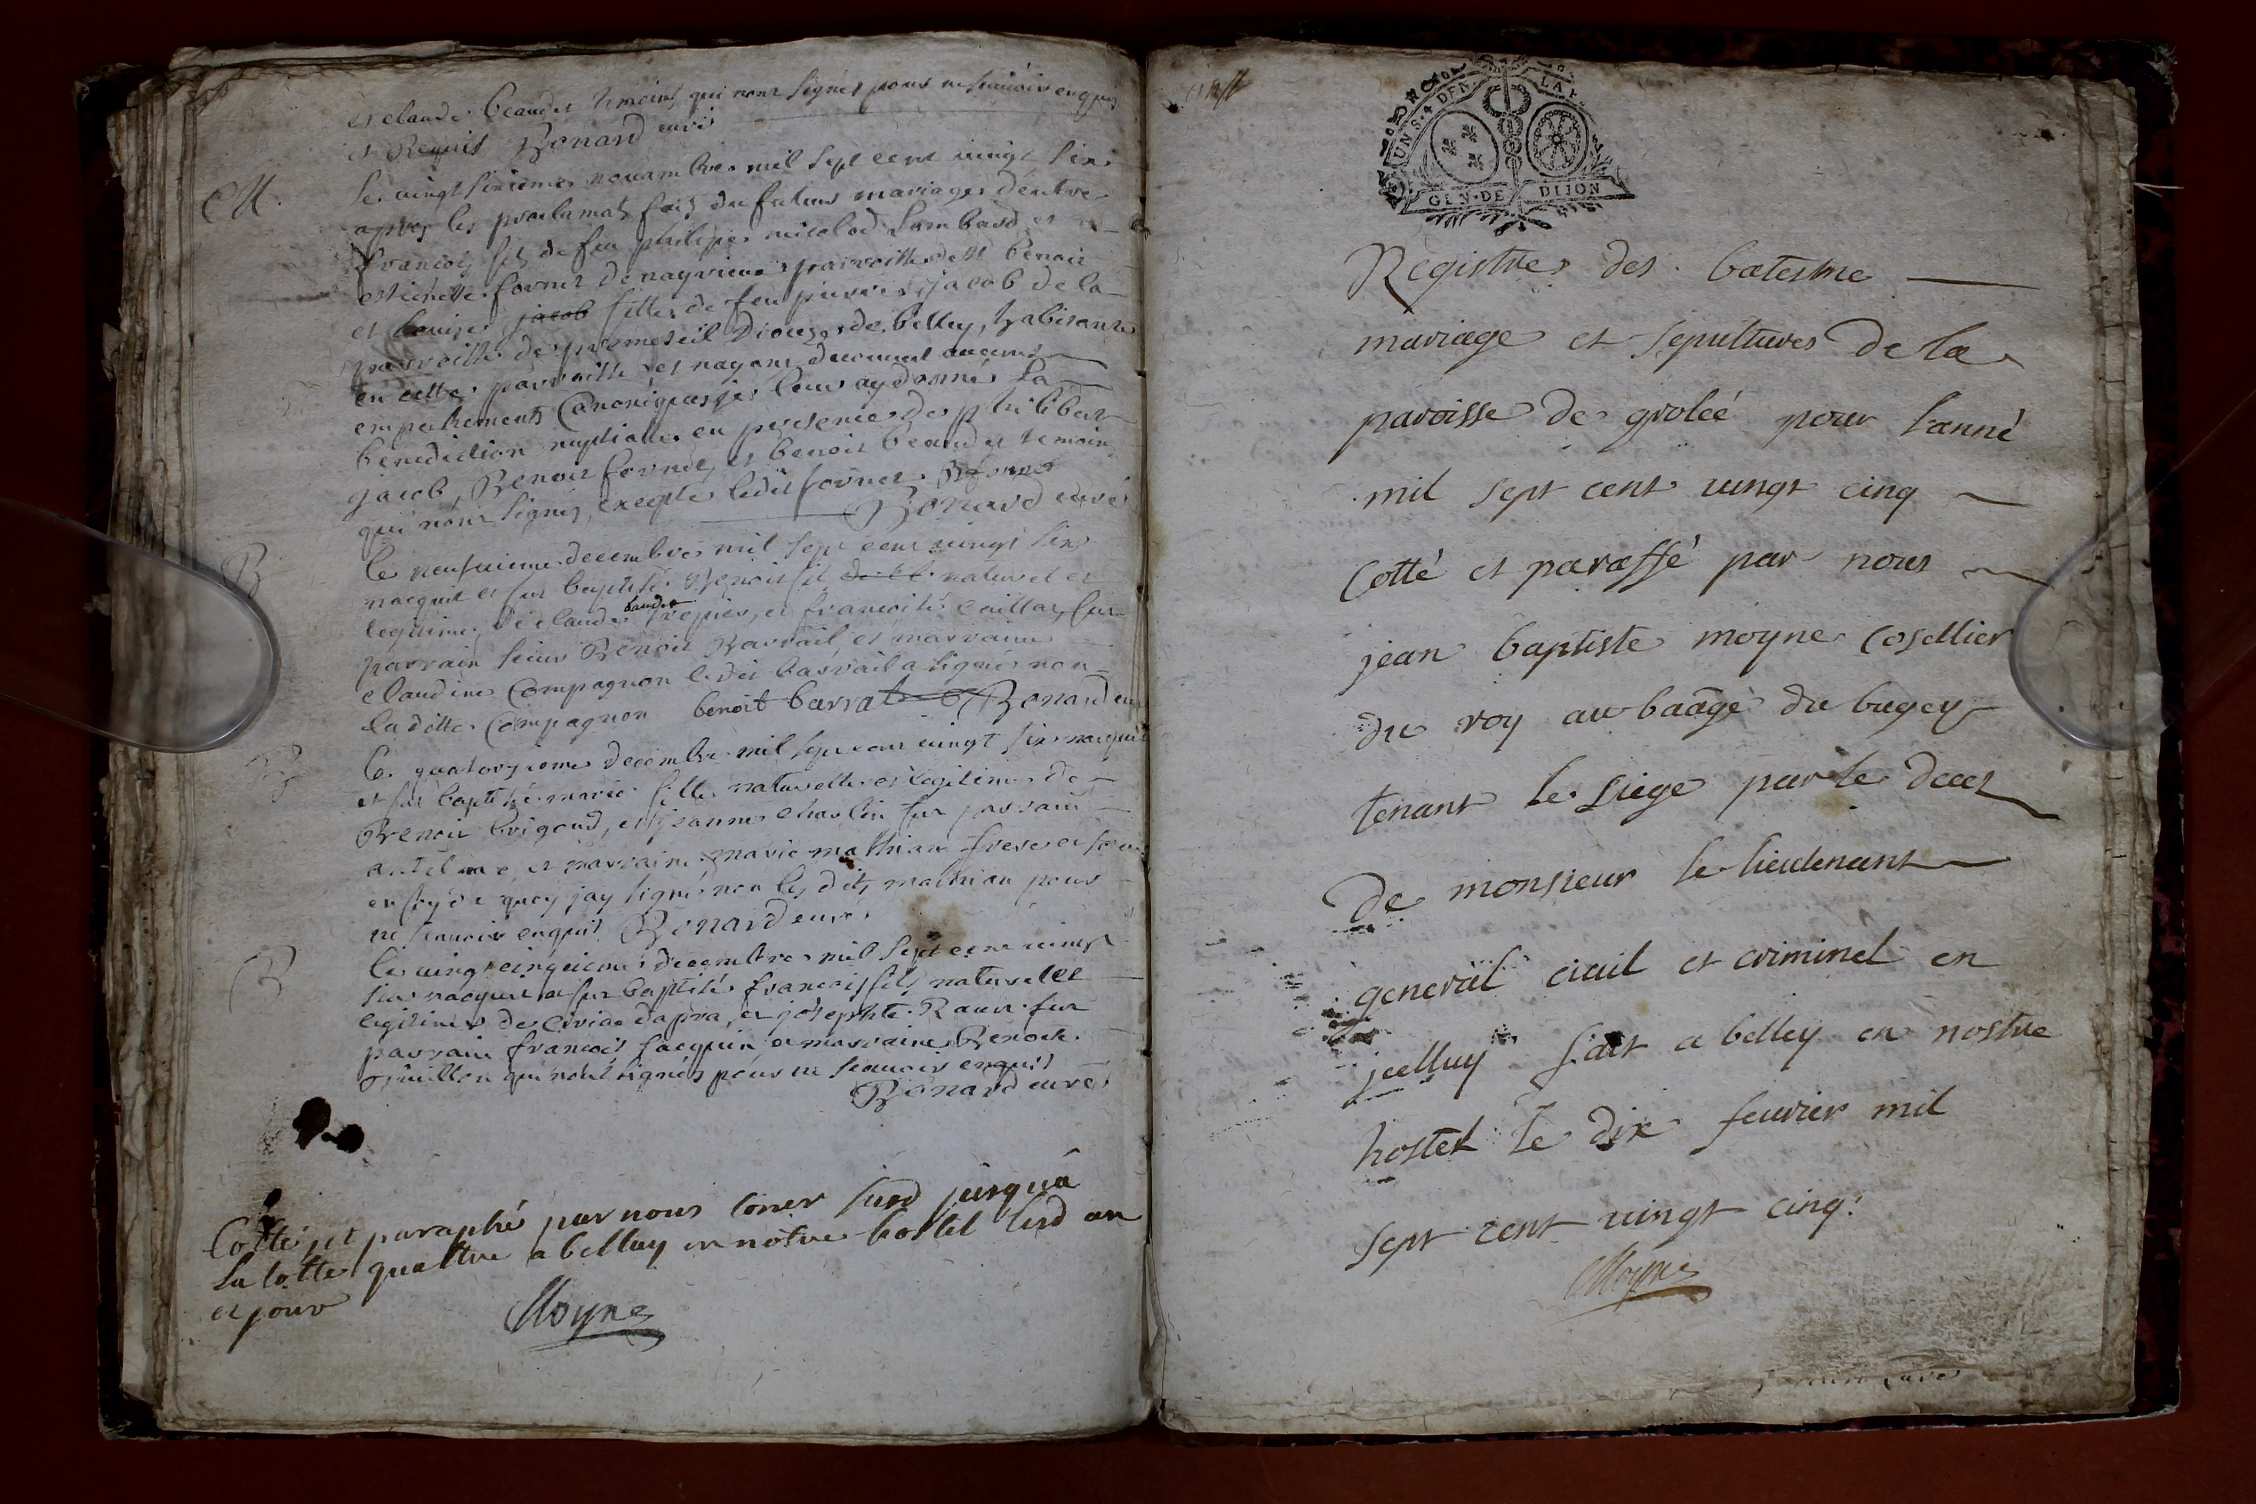 et claude beaudet temoins qui nont signés pour ne scauoir enquis
et Requis Bonard curé
M.
le vingt sixieme nouambre mil sept cent vingt six
apres les proclamats fais du futur mariage dentre
francois fils de feu philipe nicolod Lombard et
estienette fornet de nayrieu parroisse de st benoit
et Louise jacob fille de feu pierre jacob de la
parroisse de premeseil Diocese de belley, habitante
en cette parroisse et nayant decouuert aucuns
empechements Canoniques je leur ay donné La
benediction nuptialle en presence de philibert
jacob, Benoit fornet, et benoit beaudet temoins
qui nont signés, excepté ledit fornet. B fornet
Bonard curé
B
le neufuieme decembre mil sept cent vingt six
nacquit et fut baptisé Benoit fil de et naturel et
legitime, de claude baudet trepier, et francoise caillat, fut
parrain sieur Benoit Barrail, et marraine
claudine Compagnon ledit barrail a signé non
la ditte Compagnon benoit barral Bonard cur
B
le quatorzieme decembre mil sept cent vingt six nacquit
et fut baptisé marie fille naturelle et legitime de
Benoit brigoud, et jeanne chastin fut parrain
antelme, et marraine marie mathian frere et soeur
en foy de quoy jay signé non les dits mathian pour
ne scauoir enquis Bonard curé
B
le vingt cinquieme decembre mil sept cent vingt
six nacquit et fut baptisé francois fils naturel et
legitime de, et josephte fut
parrain francois Jacquin et marraine Benoite
qui nont signés pour ne scauoir enquis
Bonard curé
Cotté, et paraphé par nous Coner susd jusqua
La cotte quattre a belley en nôtre hostel lesd an
et jour
Moyne
GEN. DE DIJON
Registre des batesme
mariage et sepultures de la
paroisse de groleé pour lanné
mil sept cent vingt cinq
Cotté et paraffé par nous
jean baptiste moyne Cosellier
du roy au baãge du bugey
tenant le siege par le deces
de monsieur le lieutenant
general ciuil et criminel en
jcelluy fait a belley en nostre
hostel le dix feurier mil
sept cent vingt cinq.
Moyne